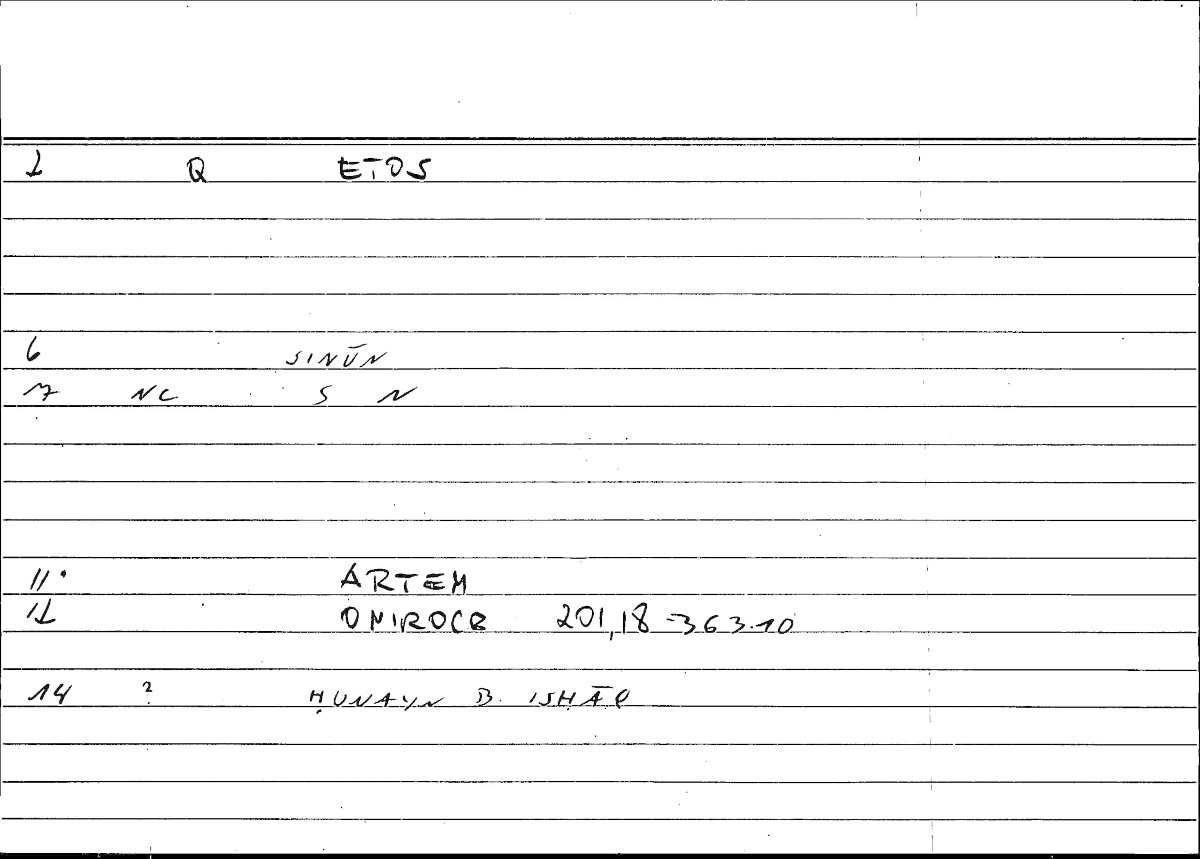 1 Q ETOS
6 SINŪN
7 NC S N
11. ARTEM
12 ONIROCR 201,18-363.10
14 ? ḤUNAYN B. ISḤĀQ